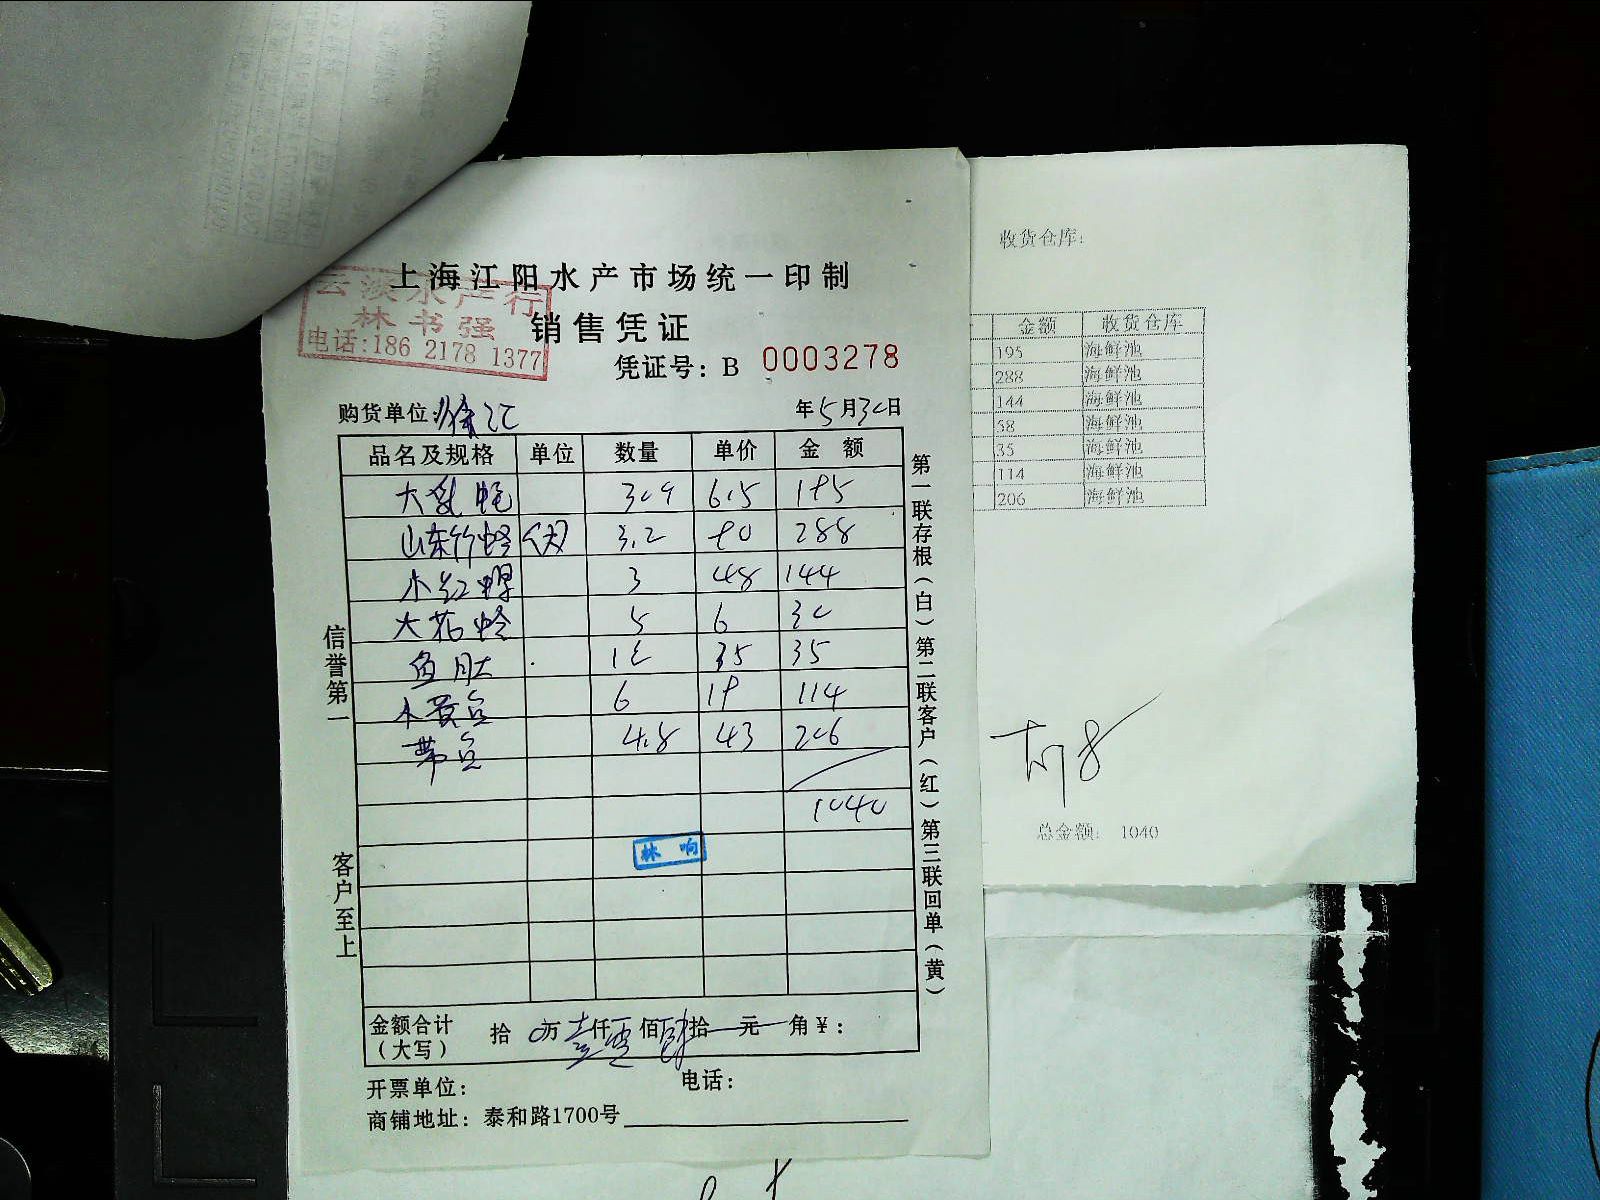 上海江阳水产市场统一印制
云淡水产行
林书强
电话:186 2178 1377
销售凭证
凭证号: B 0003278
购货单位: 徐汇 年5月30日
品名及规格 单位 数量 单价 金额
大乳蚝 30.9 6.5 195
山东竹蛏 (大) 3.2 90 288
小红蟳 3 48 144
大花蛤 5 6 30
鱼肚 1包 35 35
小黄鱼 6 19 114
带鱼 4.8 43 206
1040
林响
信誉第一
客户至上
第一联存根(白)第二联客户(红)第三联回单(黄)
金额合计(大写) 拾 0万 壹仟零佰肆拾 元 角 ¥:
开票单位: 电话:
商铺地址: 泰和路1700号
收货仓库:
金额 收货仓库
195 海鲜池
288 海鲜池
144 海鲜池
58 海鲜池
35 海鲜池
114 海鲜池
206 海鲜池
总金额: 1040